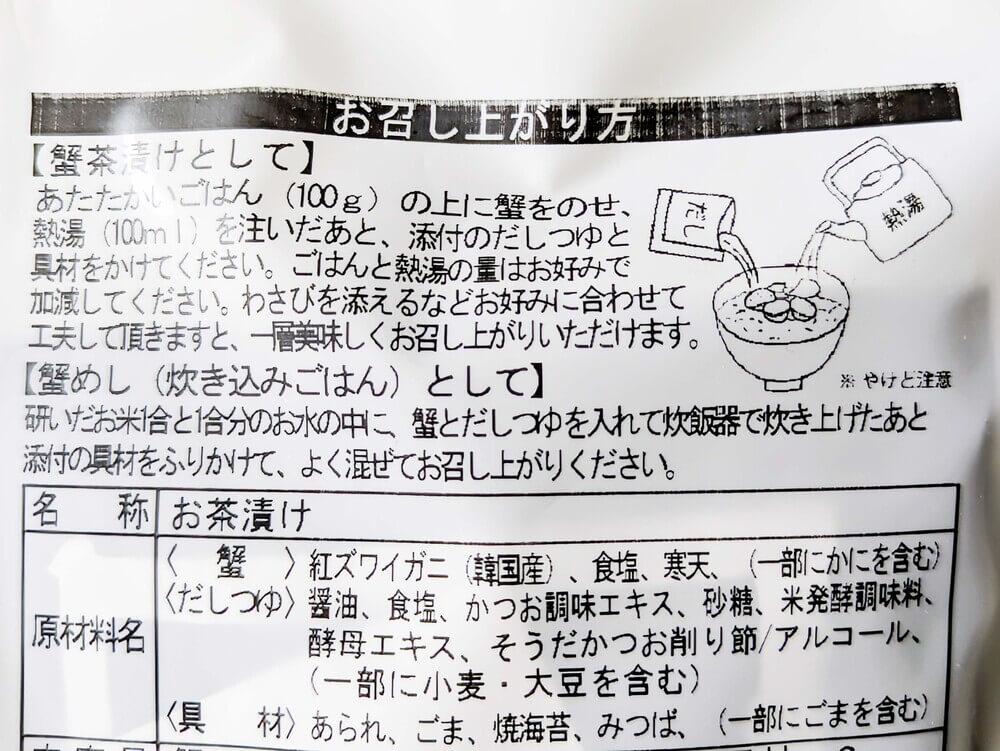 お召し上がり方
【蟹茶漬けとして】
あたたかいごはん（100g）の上に蟹をのせ、
熱湯（100ml）を注いだあと、添付のだしつゆと
具材をかけてください。ごはんと熱湯の量はお好みで
加減してください。わさびを添えるなどお好みに合わせて
工夫して頂きますと、一層美味しくお召し上がりいただけます。
だし
熱湯
※ やけど注意
【蟹めし（炊き込みごはん）として】
研いだお米1合と1合分のお水の中に、蟹とだしつゆを入れて炊飯器で炊き上げたあと
添付の具材をふりかけて、よく混ぜてお召し上がりください。
名称 お茶漬け
原材料名 〈蟹〉紅ズワイガニ（韓国産）、食塩、寒天、（一部にかにを含む）
〈だしつゆ〉醤油、食塩、かつお調味エキス、砂糖、米発酵調味料、
酵母エキス、そうだかつお削り節/アルコール、
（一部に小麦・大豆を含む）
〈具材〉あられ、ごま、焼海苔、みつば、（一部にごまを含む）